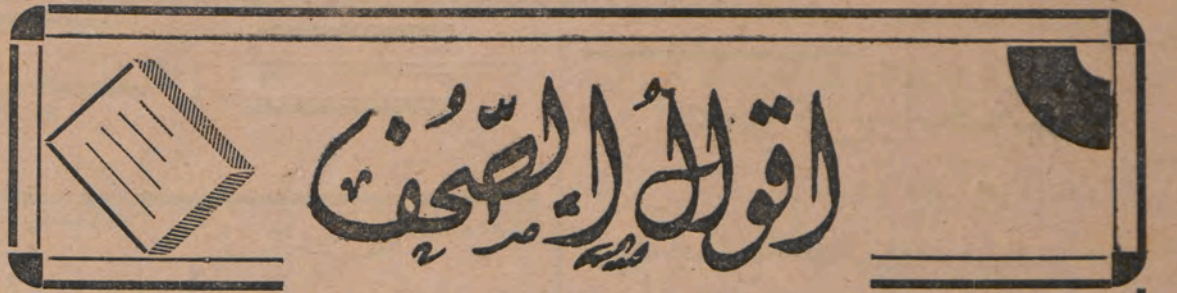 اقوالُ الصّحُف